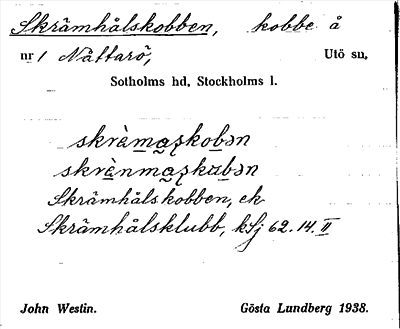 Skrämhålskobben, kobbe å
nr 1 Nåttarö, Utö sn,
Sotholms hd, Stockholms l.
skrèmaʂkobən
skrènmaʂkɷbən
Skrämhålskobben, ek
Skrämhålsklubb, ksj 62.14.II
John Westin. Gösta Lundberg 1938.